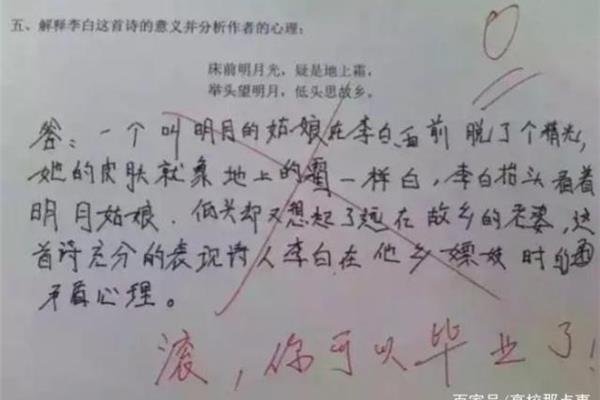 五、解释李白这首诗的意义并分析作者的心理:
床前明月光，疑是地上霜，
举头望明月，低头思故乡。
答：一个叫明月的姑娘在李白面前脱了个精光，
她的皮肤就象地上的霜一样白，李白抬头看着
明月姑娘．低头却又想起了远在故乡的老婆，这
首诗充分的表现诗人李白在他乡嫖妓时的
矛盾心理。
滚，你可以毕业了！
百家号/高校那点事